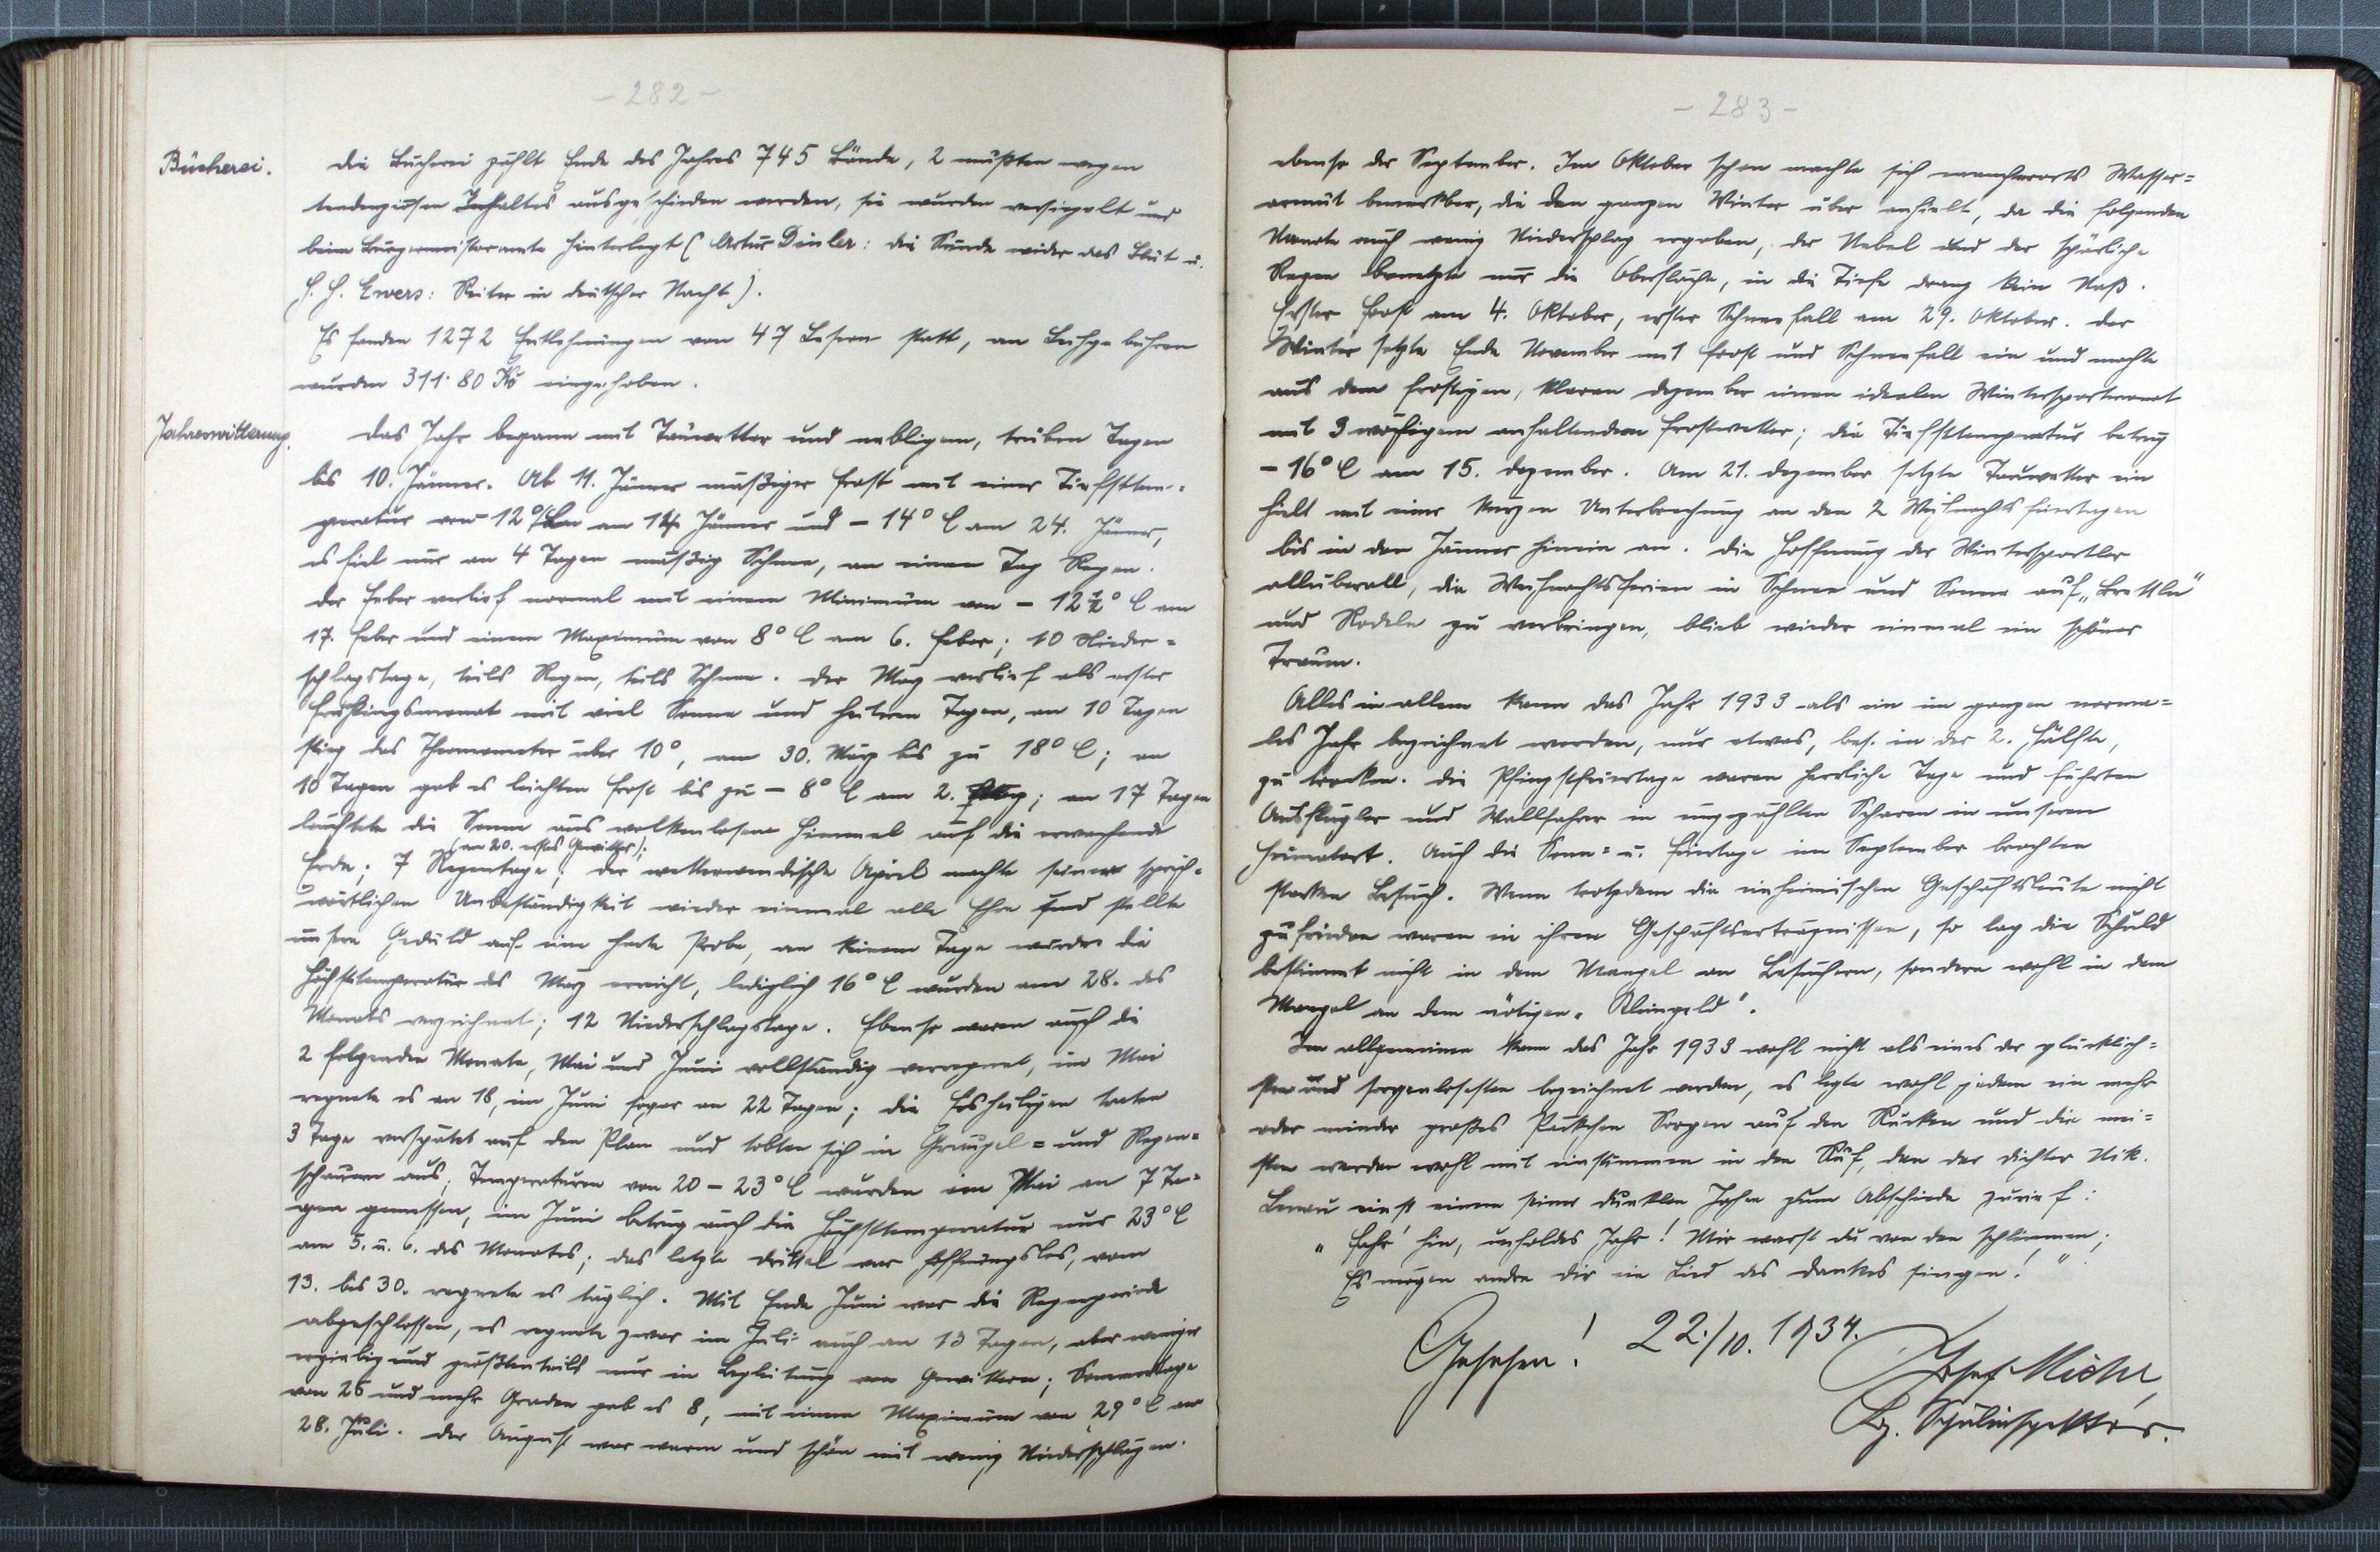 - 282 -
Bücherei.
Die Bücherei zählt Ende des Jahres 745 Bände, 2 mußten wegen
tendenziösen Inhaltes ausgeschieden werden, sie wurden versiegelt und
beim Bürgermeisteramte hinterlegt (Artur Dinter: Die Sünde wider das Blut u.
H. H. Ewers: Reiter in deutscher Nacht).
Es fanden 1272 Entlehnungen von 47 Lesern statt, an Leihgebühren
wurden 311·80 Kč eingehoben.
Jahreswitterung.
Das Jahr begann mit Tauwetter und nebligem, trüben Tagen
bis 10. Jänner. Ab 11. Jänner mäßiger Frost mit einer Tiefsttem=
peratur von 12° am 14. Jänner und - 14° C am 24. Jänner,
es fiel nur an 4 Tagen mäßig Schnee, an einem Tag Regen.
Der Feber verlief normal mit einem Minimum von - 12 1/2° C am
17. Feber und einem Maximum von 8° C am 6. Feber; 10 Nieder=
schlagstage, teils Regen, teils Schnee. Der März verlief als erster
Frühlingsmonat mit viel Sonne und heiteren Tagen, an 10 Tagen
stieg das Thermometer über 10°, am 30. März bis zu 18° C; an
10 Tagen gab es leichten Frost bis zu - 8° C am 2. März; an 17 Tagen
leuchtete die Sonne aus wolkenlosem Himmel auf die erwachende
(am 20. erstes Gewitter);
Erde; 7 Regentage; Der wetterwendische April machte seiner sprich=
wörtlichen Unbeständigkeit wieder einmal alle Ehre und stellte
unsere Geduld auf eine harte Probe, an keinem Tage wurde die
Höchsttemperatur des März erreicht, lediglich 16° C wurden am 28. des
Monats verzeichnet; 12 Niederschlagstage. Ebenso waren auch die
2 folgenden Monate, Mai und Juni vollständig verregnet, im Mai
regnete es an 18, im Juni sogar an 22 Tagen; die Eisheiligen traten
3 Tage verspätet auf den Plan und tobten sich in Graupel= und Regen=
schauern aus; Temperaturen von 20 - 23° C wurden im Mai an 7 Ta=
gen gemessen, im Juni betrug auch die Höchsttemperatur nur 23° C
am 5. u. 6. des Monates; das letzte Drittel war hoffnungslos, vom
13. bis 30. regnete es täglich. Mit Ende Juni war die Regenperiode
abgeschlossen, es regnete zwar im Juli auch an 13 Tagen, aber weniger
ergiebig und größtenteils nur in Begleitung von Gewittern; Sommertage
von 25 und mehr Graden gab es 8, mit einem Maximum von 29° C am
28. Juli. Der August war warm und schön mit wenig Niederschlägen.
- 283 -
ebenso der September. Im Oktober schon machte sich mancherorts Wasser=
armut bemerkbar, die den ganzen Winter über anhielt, da die folgenden
Monate auch wenig Niederschlag ergaben, der Nebel und der spärliche
Regen benetzte nur die Oberfläche, in die Tiefe drang kein Naß.
Erster Frost am 4. Oktober, erster Schneefall am 29. Oktober. Der
Winter setzte Ende November mit Frost und Schneefall ein und machte
aus dem frostigen, klaren Dezember einen idealen Wintersportmonat
mit 3 wöchigem anhaltendem Frostwetter; die Tiefsttemperatur betrug
- 16° C am 15. Dezember. Am 21. Dezember setzte Tauwetter ein
hielt mit einer kurzen Unterbrechung an den 2 Weihnachtsfeiertagen
bis in den Jänner hinein an. Die Hoffnung der Wintersportler
allüberall, die Weihnachtsferien in Schnee und Sonne auf „Brettln"
und Rodeln zu verbringen, blieb wieder einmal ein schöner
Traum.
Alles in allem kann das Jahr 1933 als ein im ganzen norma=
les Jahr bezeichnet werden, nur etwas, bes. in der 2. Hälfte,
zu trocken. Die Pfingstfeiertage waren herrliche Tage und führten
Ausflügler und Wallfahrer in ungezählten Scharen in unseren
Heimatort. Auch die Sonn= u. Feiertage im September brachten
starken Besuch. Wenn trotzdem die einheimischen Geschäftsleute nicht
zufrieden waren in ihren Geschäftserträgnissen, so lag die Schuld
bestimmt nicht in dem Mangel an Besuchern, sondern wohl in dem
Mangel an dem nötigen „Kleingeld".
Im allgemeinen kann das Jahr 1933 wohl nicht als eines der glücklich=
sten und sorgenlosesten bezeichnet werden, es legte wohl jedem ein mehr
oder minder großes Päckchen Sorgen auf den Rücken und die mei=
sten werden wohl mit einstimmen in den Ruf, den der Dichter Nik.
Lenau einst einem seiner dunklen Jahre zum Abschiede zurief:
„Fahr' hin, unholdes Jahr! Mir warst du von den schlimmen;
Es mögen andre dir ein Lied des Dankes singen!"
Gesehen! 22./10. 1934.
Josef Michl,
Bz. Schulinspektor.